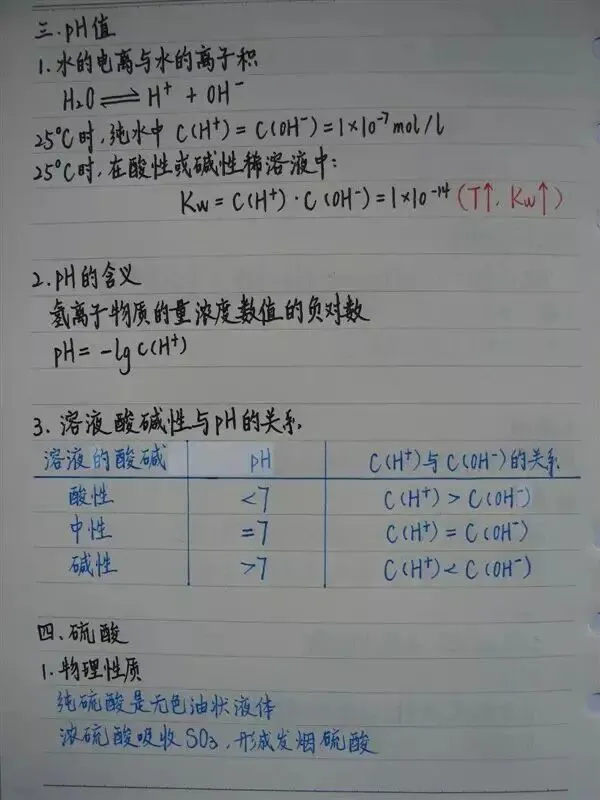 三.pH值
1.水的电离与水的离子积
H₂O⇌H⁺ + OH⁻
25°C时,纯水中 C(H⁺)=C(OH⁻)=1×10⁻⁷mol/l
25°C时,在酸性或碱性稀溶液中:
Kw=C(H⁺)·C(OH⁻)=1×10⁻¹⁴(T↑,Kw↑)
2.pH的含义
氢离子物质的量浓度数值的负对数
pH=-lgC(H⁺)
3.溶液酸碱性与pH的关系
溶液的酸碱 pH C(H⁺)与C(OH⁻)的关系
酸性 <7 C(H⁺)>C(OH⁻)
中性 =7 C(H⁺)=C(OH⁻)
碱性 >7 C(H⁺)<C(OH⁻)
四.硫酸
1.物理性质
纯硫酸是无色油状液体
浓硫酸吸收SO₃,形成发烟硫酸